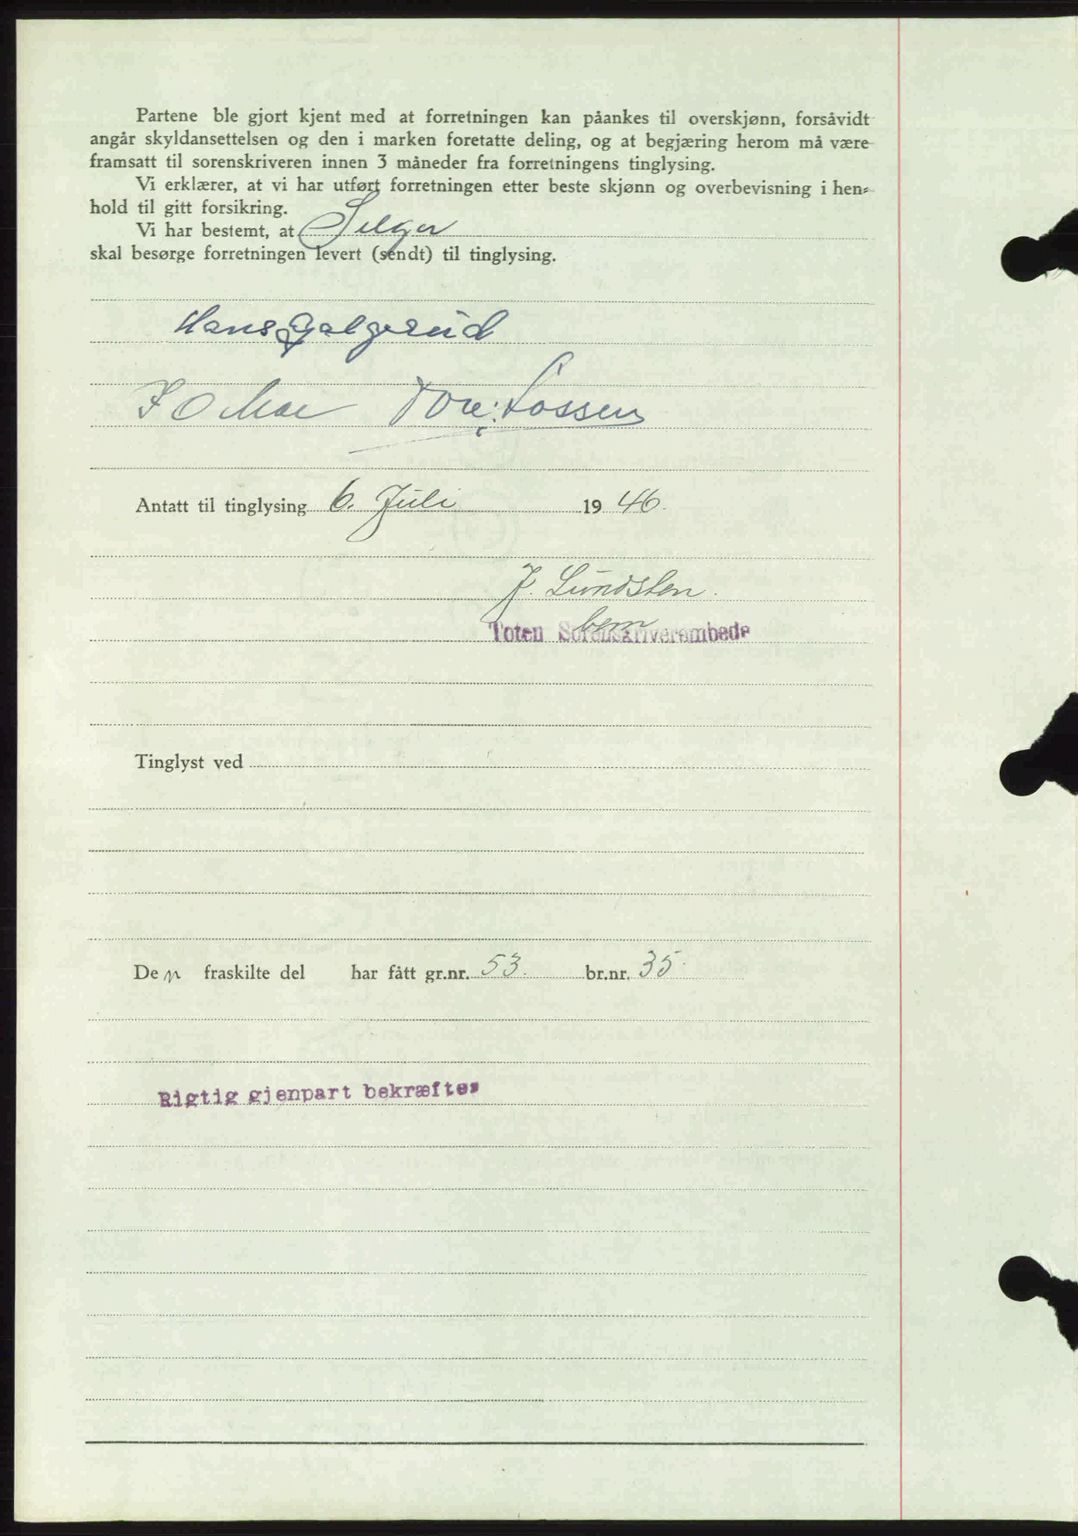 Partene ble gjort kjent med at forretningen kan påankes til overskjønn, forsåvidt
angår skyldansettelsen og den i marken foretatte deling, og at begjæring herom må være
framsatt til sorenskriveren innen 3 måneder fra forretningens tinglysing.
Vi erklærer, at vi har utført forretningen etter beste skjønn og overbevisning i hen-
hold til gitt forsikring.
Vi har bestemt, at Selger
skal besørge forretningen levert (sendt) til tinglysing.
Hans Galgerud
Tore Lossen
Antatt til tinglysing 6. Juli 1946.
J. Lundsten.
bem
Toten Sorenskriverembede
Tinglyst ved
Den fraskilte del har fått gr.nr. 53. br.nr. 35.
Rigtig gjenpart bekræftes